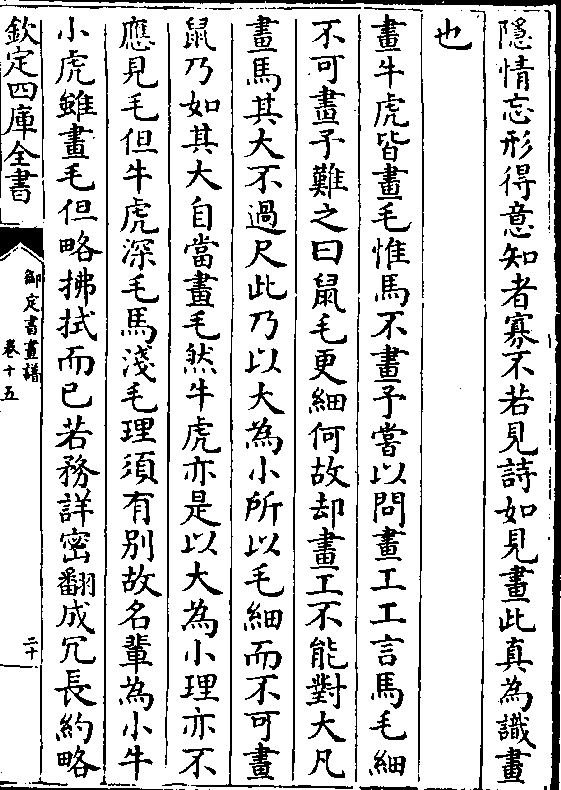 隱情忘形得意知者寡不若見詩如見畫此真為識畫
也
畫牛虎皆畫毛惟馬不畫予嘗以問畫工工言馬毛細
不可畫予難之曰鼠毛更細何故却畫工不能對大凡
畫馬其大不過尺此乃以大為小所以毛細而不可畫
鼠乃如其大自當畫毛然牛虎亦是以大為小理亦不
應見毛但牛虎深毛馬淺毛理須有别故名輩為小牛
小虎雖畫毛但略拂拭而已若務詳密翻成冗長約略
欽定四庫全書
御定書畫譜
卷十五
二十